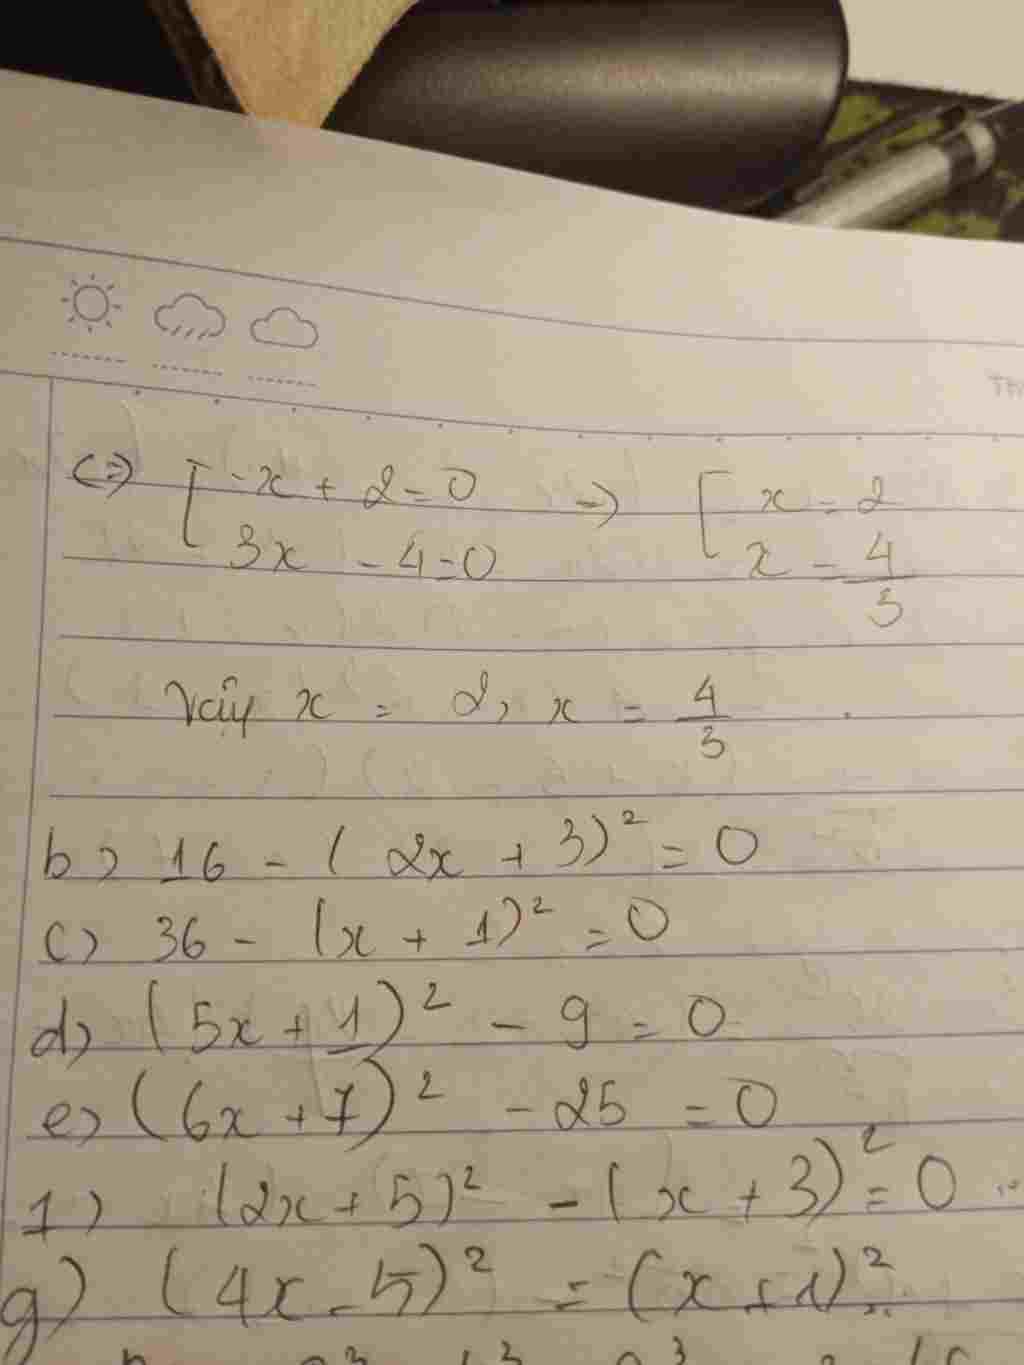 (=) [ -x + 2 = 0 -> [ x = 2
3x - 4 = 0 x = 4/3
Vậy x = 2, x = 4/3.
b) 16 - (2x + 3)² = 0
c) 36 - (x + 1)² = 0
d) (5x + 1)² - 9 = 0
e) (6x + 7)² - 25 = 0
1) (2x + 5)² - (x + 3)² = 0
g) (4x - 5)² = (x + 1)²